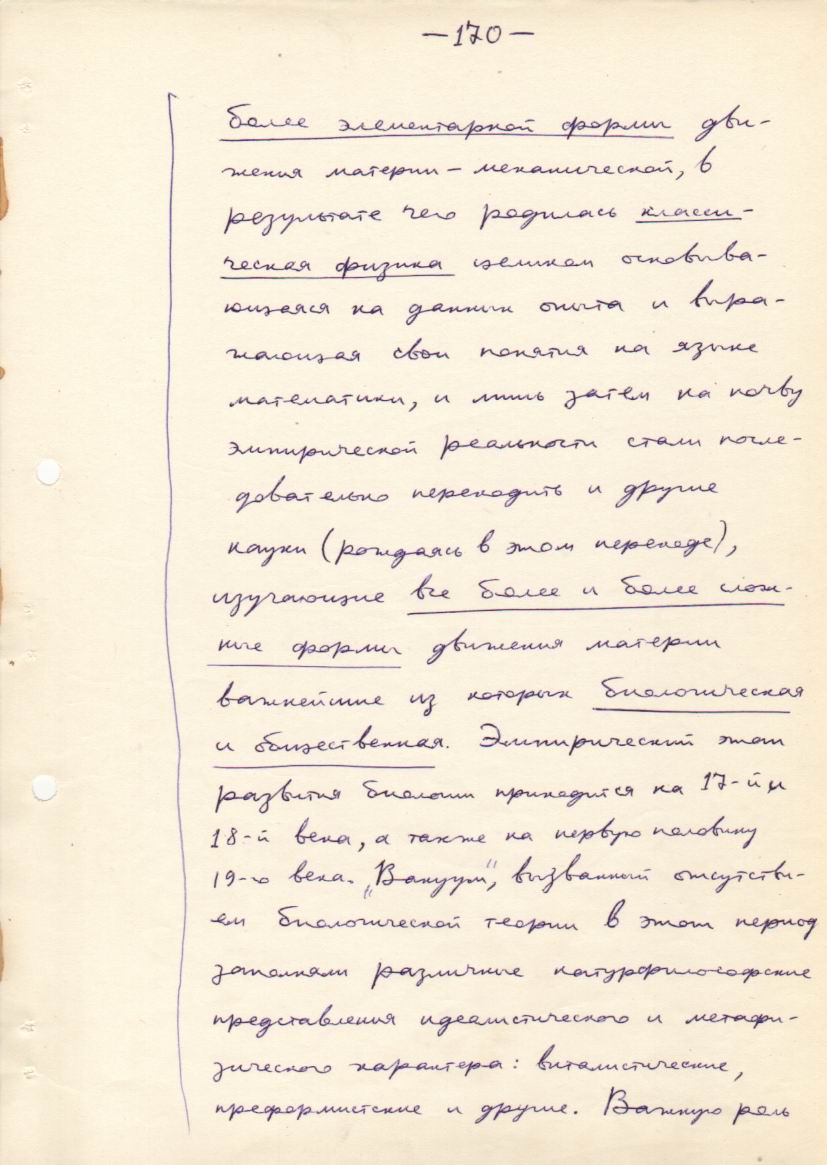 —170—
более элементарной формы дви-
жения материи – механической, в
результате чего родилась класси-
ческая физика целиком основыва-
ющаяся на данных опыта и выра-
жающая свои понятия на языке
математики, и лишь затем на почву
эмпирической реальности стали после-
довательно переходить и другие
науки (рождаясь в этом переходе),
изучающие все более и более слож-
ные формы движения материи
важнейшие из которых биологическая
и общественная. Эмпирический этап
развития биологии приходится на 17-й и
18-й века, а также на первую половину
19-го века. „Вакуум", вызванный отсутстви-
ем биологической теории в этот период
заполняли различные натурфилософские
представления идеалистического и метафи-
зического характера: виталистические,
преформистские и другие. Важную роль